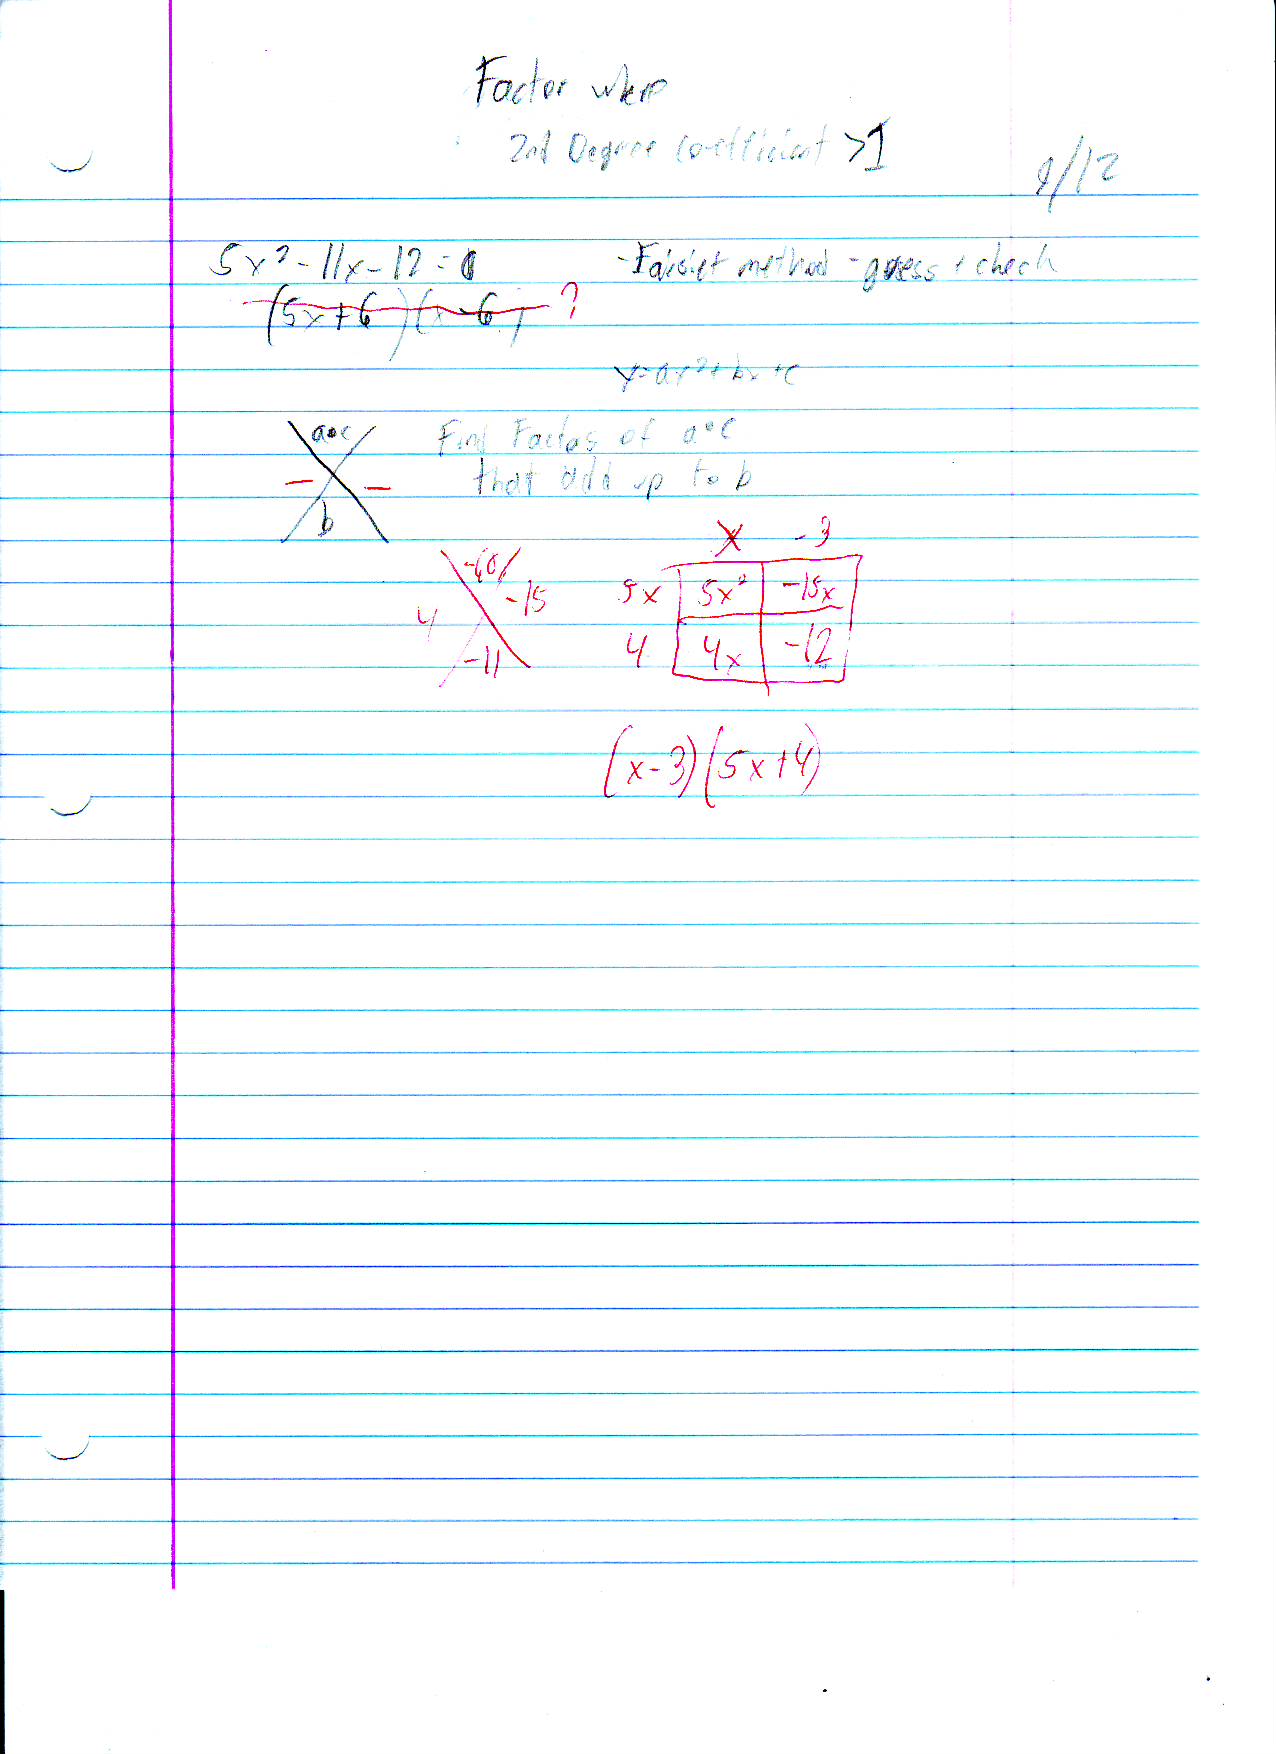 Factor when
2nd Degree Coefficient >1
9/12
5x² - 11x - 12 = 0
- Easiest method - guess + check
(5x+6)(x-6) ?
y=ax²+bx+c
a•c
Find Factos of a•c
that add up to b
b
x -3
-60
4 -15
-11
5x 5x² -15x
4 4x -12
(x-3)(5x+4)